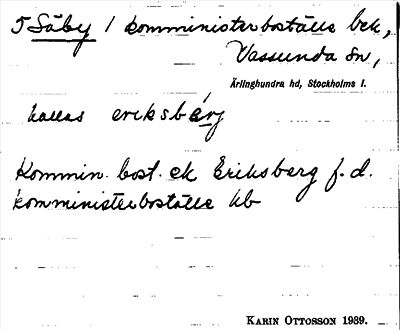 5 Säby 1 komministerboställe bek,
Vassunda sn,
Ärlinghundra hd, Stockholms l.
kallas eriksbérg
Kommin. bost. ek Eriksberg f.d.
komministerboställe hb
KARIN OTTOSSON 1989.